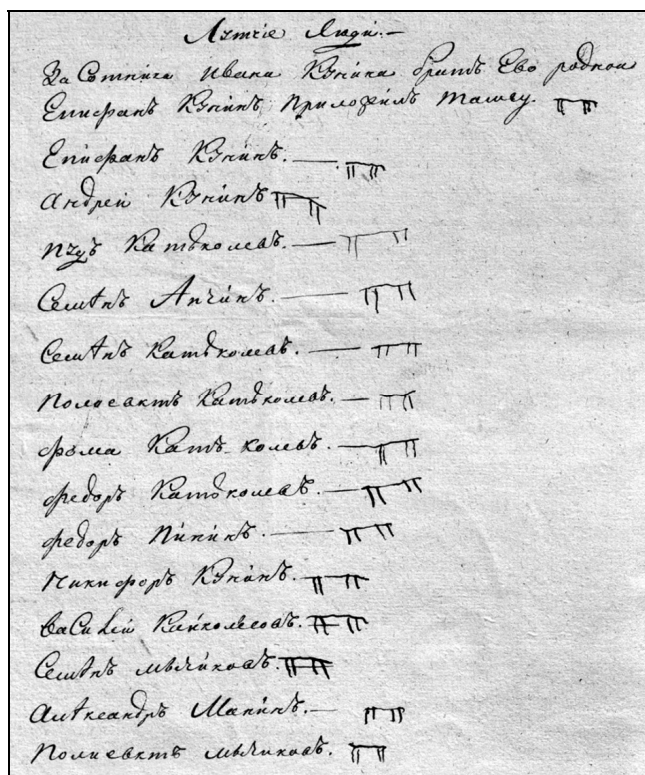 Лутчіе Люди.—
За Сотника Ивана Кунина братъ Ево роднои
Епифанъ Кунинъ приложилъ тамгу.
Епифанъ Кунинъ.—
Андреи Кунинъ
Катъколевъ.—
Семѣнъ Апчинъ.—
Семѣнъ Катъколевъ.—
Полоевктъ Катъколевъ.—
фома Катъ-колевъ.—
федоръ Катъколевъ.—
федоръ Пининъ.—
Никифоръ Кунинъ.—
Василіи.
Семѣнъ мычиковъ.
Алѣксандръ Манинъ.—
Полиевктъ мычиковъ.